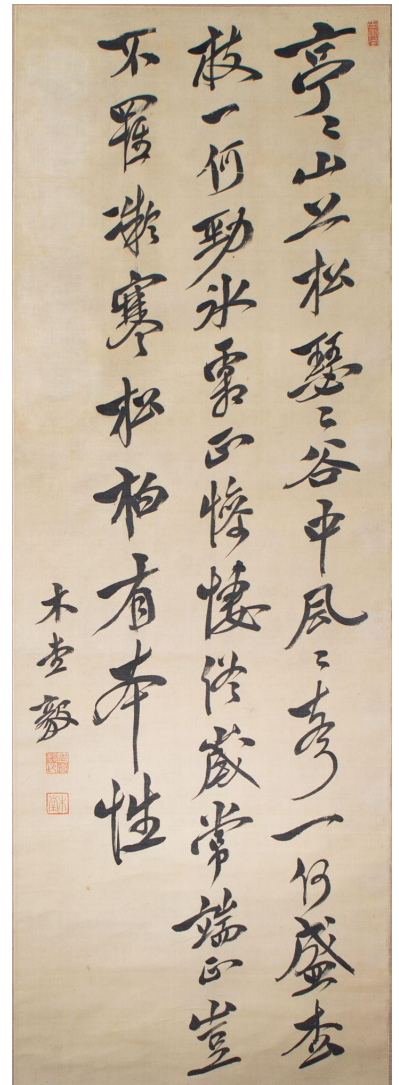 亭〻山上松瑟〻谷中風〻声一何盛枩
枝一何勁氷霜正惨悽終歳常端正豈
不罹凝寒松柏有本性
木堂毅